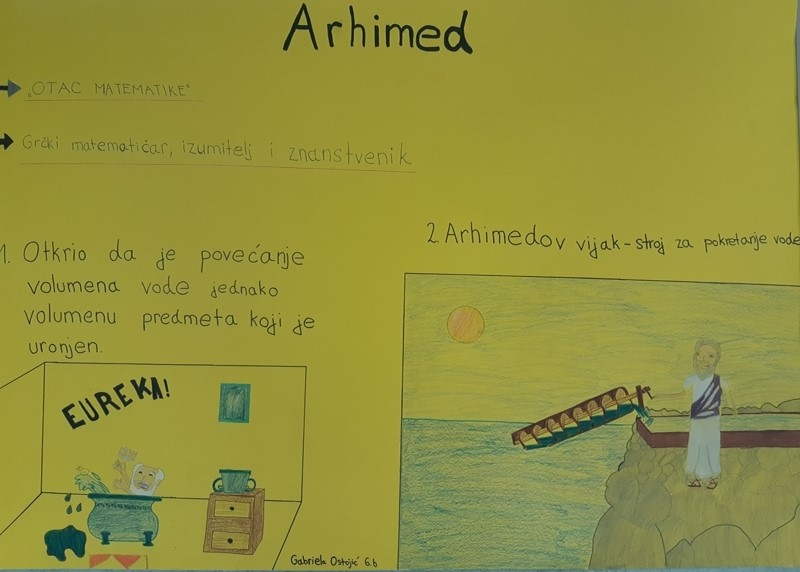 Arhimed
„OTAC MATEMATIKE"
Grčki matematičar, izumitelj i znanstvenik
1. Otkrio da je povećanje
volumena vode jednako
volumenu predmeta koji je
uronjen.
EUREKA!
2 Arhimedov vijak - stroj za pokretanje vode
Gabriela Ostojić 6.b